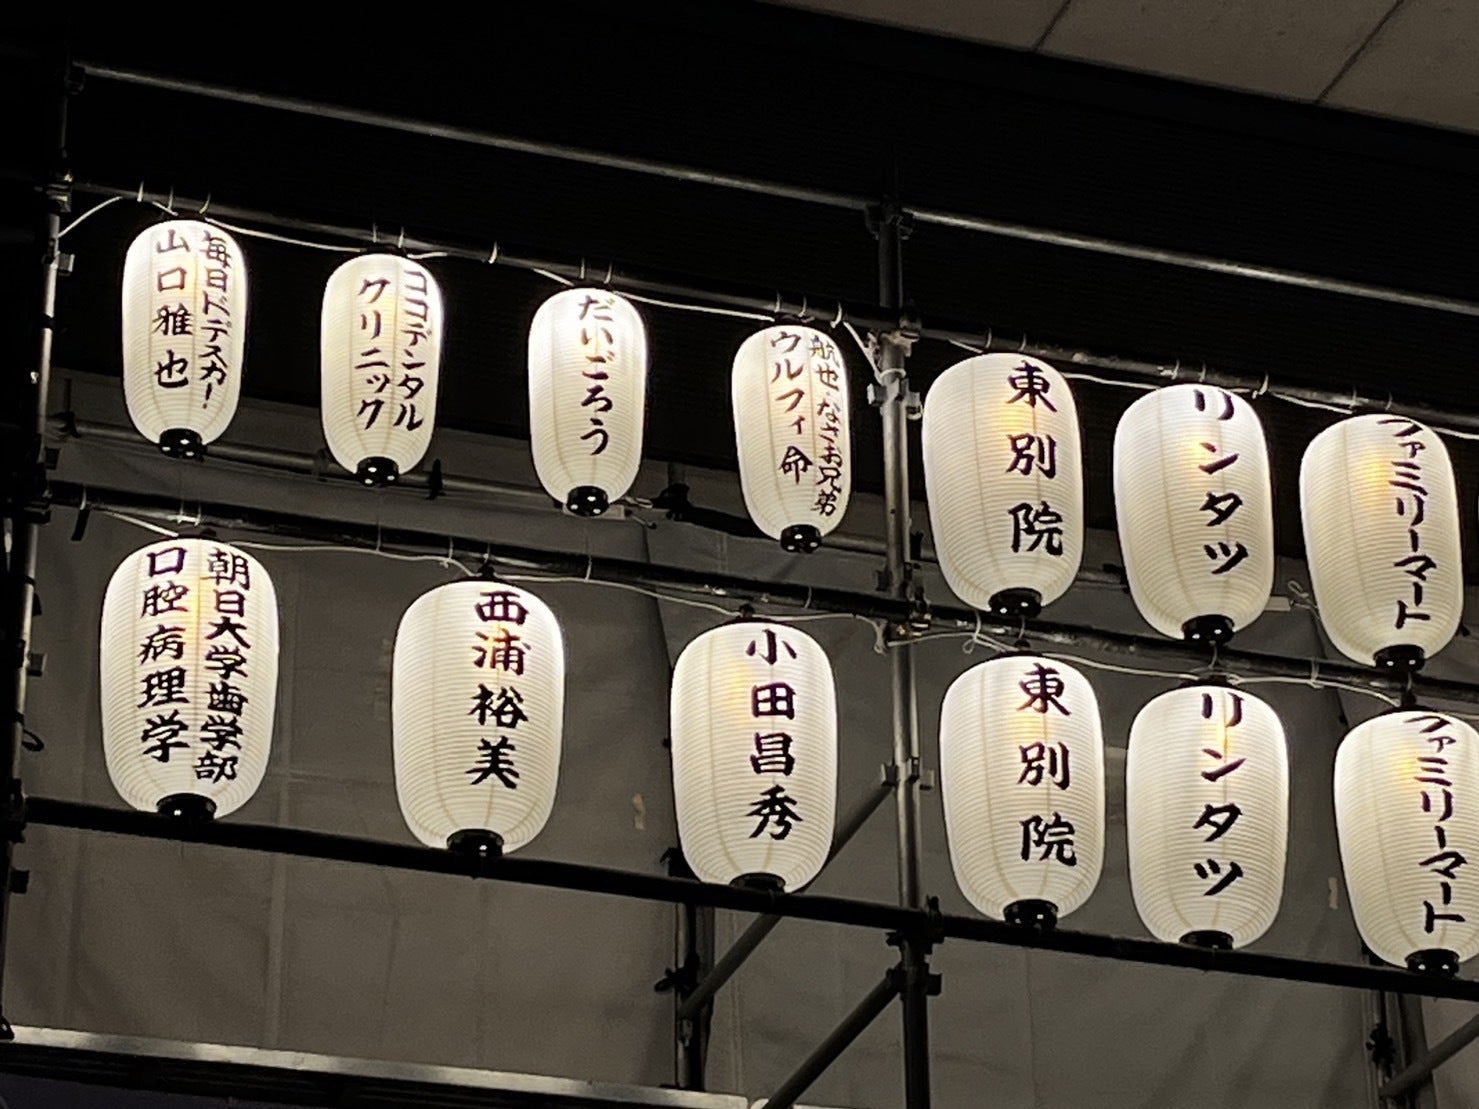 毎日ドデスカ!
山口雅也
ココデンタル
クリニック
だいごろう
航世・なさお兄弟
ウルフィ命
東別院
リンタツ
ファミリーマート
朝日大学歯学部
口腔病理学
西浦裕美
小田昌秀
東別院
リンタツ
ファミリーマート